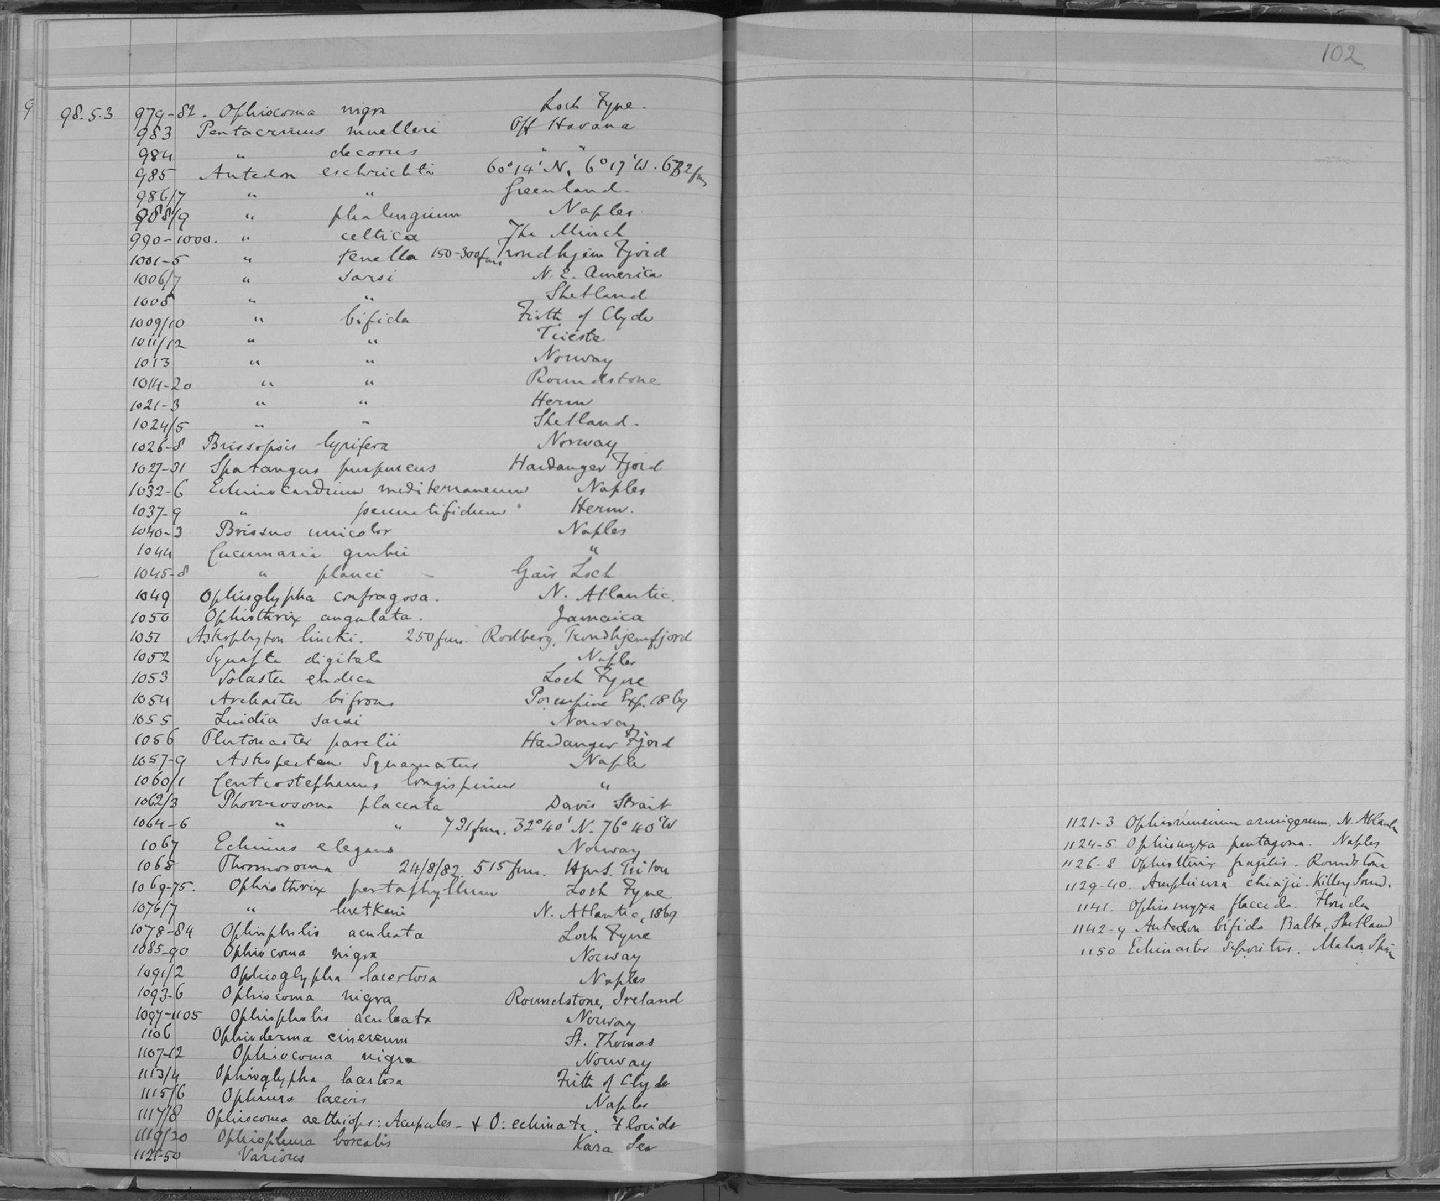 102
9 98.5.3 979-82. Ophiocoma nigra Loch Fyne.
983 Pentacrinus muelleri Off Havana
984 " decorus " "
985 Antedon eschrichti 60°14' N. 6°17' W. 632 fms
986/7 " " Greenland.
988/9 " phalangium Naples.
990-1000. " celtica The Minch
1001-5 " tenella 150-300 fms Trondhjem Fjord
1006/7 " sarsi N. E. America
1008 " " Shetland
1009/10 " bifida Firth of Clyde
1011/12 " " Trieste
1013 " " Norway
1014-20 " " Roundstone
1021-3 " " Herm
1024/5 " " Shetland.
1026-8 Brissopsis lyrifera Norway
1027-31 Spatangus purpureus Hardanger Fjord
1032-6 Echinocardium mediterraneum Naples
1037-9 " pennatifidum Herm.
1040-3 Brissus unicolor Naples
1044 Cucumaria grubii "
1045-8 " planci - Gair Loch
1049 Ophioglypha confragosa. N. Atlantic.
1050 Ophiothrix angulata. Jamaica
1051 Astrophyton lincki. 250 fms. Rodberg, Trondhjemfjord
1052 Synapta digitata Naples
1053 Solaster endeca Loch Fyne
1054 Archaster bifrons Porcupine Exp. 1869
1055 Luidia sarsi Norway
1056 Plutonaster parelii Hardanger Fjord
1057-9 Astropecten squamatus Naples
1060/1 Centrostephanus longispinus "
1062/3 Phormosoma placenta Davis Strait
1064-6 " " 731 fms. 32°40' N. 76°40' W
1067 Echinus elegans Norway
1068 Phormosoma 24/8/82 515 fms. H.M.S. Triton
1069-75. Ophiothrix pentaphyllum Loch Fyne
1076/7 " luetkeni N. Atlantic, 1869
1078-84 Ophiopholis aculeata Loch Fyne
1085-90 Ophiocoma nigra Norway
1091/2 Ophioglypha lacertosa Naples
1093-6 Ophiocoma nigra Roundstone, Ireland
1097-1105 Ophiopholis aculeata Norway
1106 Ophioderma cinereum St. Thomas
1107-12 Ophiocoma nigra Norway
1113/4 Ophioglypha lacertosa Firth of Clyde
1115/6 Ophiura laevis Naples
1117/8 Ophiocoma aethiops: Acapulco - & O. echinata. Florida
1119/20 Ophiopleura borealis Kara Sea
1121-50 Various
1121-3 Ophiomusium armigerum. N. Atlantic
1124-5 Ophiomyxa pentagona. Naples
1126-8 Ophiothrix fragilis. Roundstone
1129-40. Amphiura chiajii. Killary Sound.
1141. Ophiomyxa flaccida. Florida
1142-9 Antedon bifida Balta, Shetland
1150 Echinaster sepositus. Mahon Spain